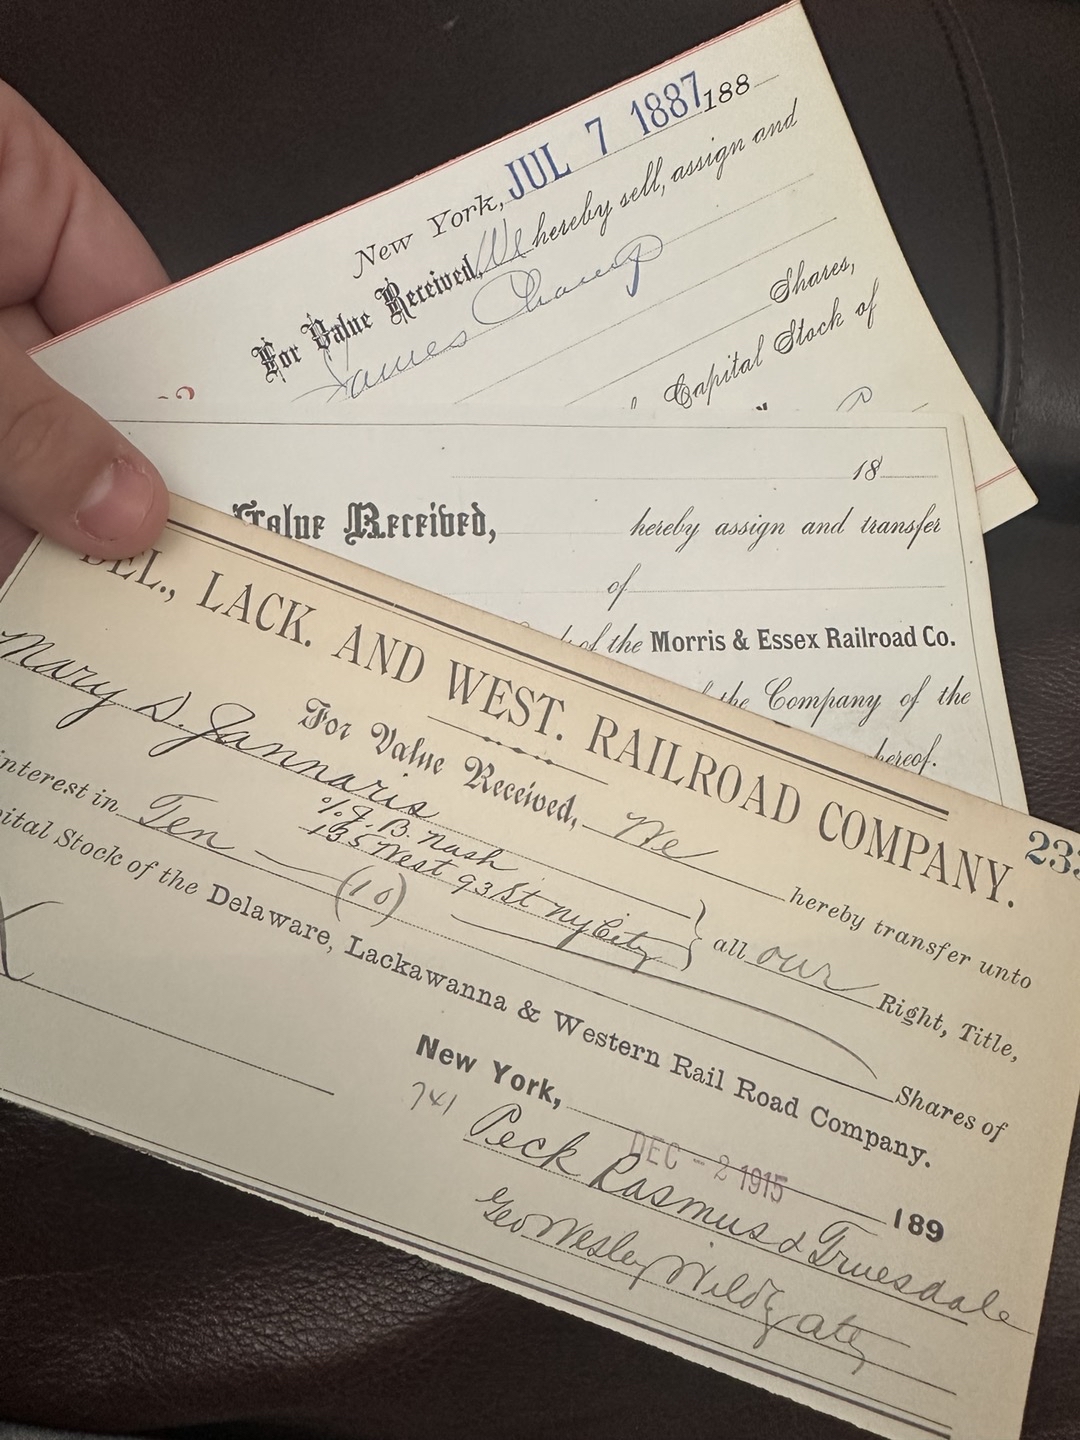 New York, JUL 7 1887 188
For Value Received, We hereby sell, assign and
James Champ
Shares,
Capital Stock of
18
Value Received, hereby assign and transfer
of
of the Morris & Essex Railroad Co.
the Company of the
hereof.
DEL., LACK. AND WEST. RAILROAD COMPANY.
233
For Value Received, We hereby transfer unto
Mary D. Jannaris
% J B. Nash
155 West 93 St NY City } all our Right, Title,
interest in Ten (10) Shares of
pital Stock of the Delaware, Lackawanna & Western Rail Road Company.
New York, DEC - 2 1915 189
741
Peck Rasmus & Truesdale
Geo Wesley Wild